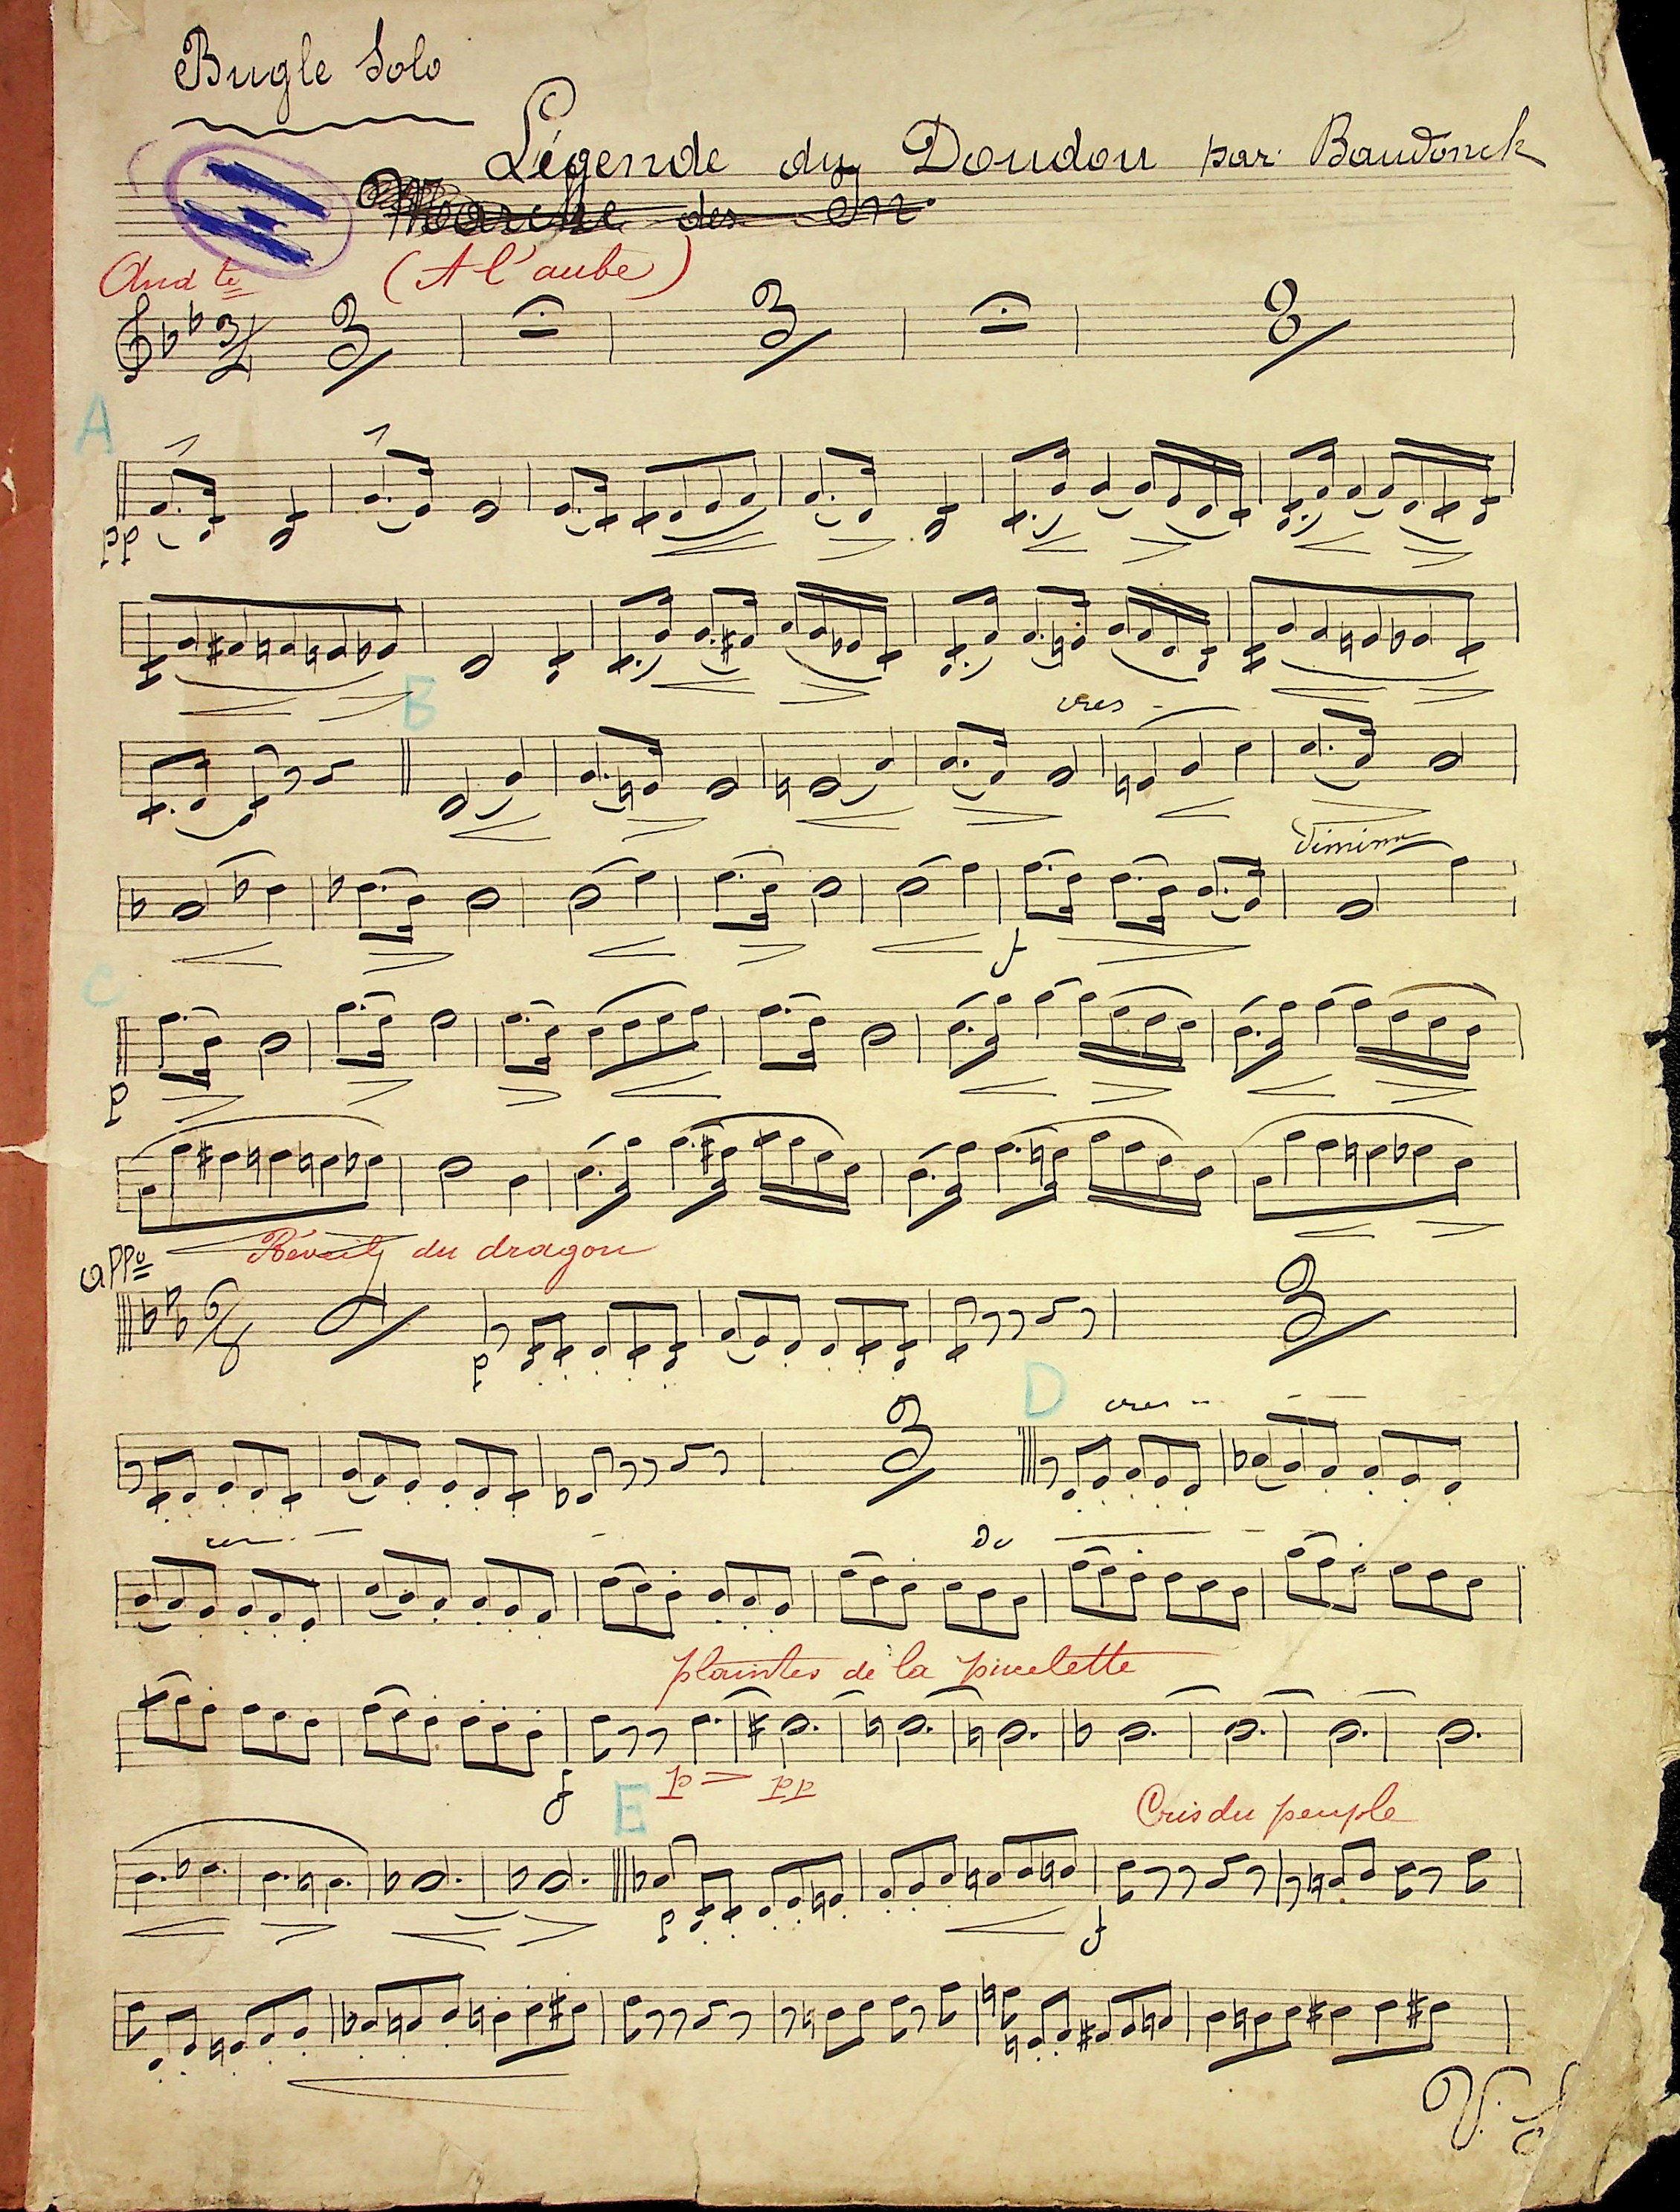 Bugle Solo
Légende du Doudou par Baudonck
Marche des
And te (A l'aube)
3 3 8
A
pp
B
cres -
dimin
f
C
p
appo Réveil du dragon
6/8
p 3
D cres --
3
cen - do
plaintes de la pucelette
f p pp
E Cris du peuple
p f
V. S